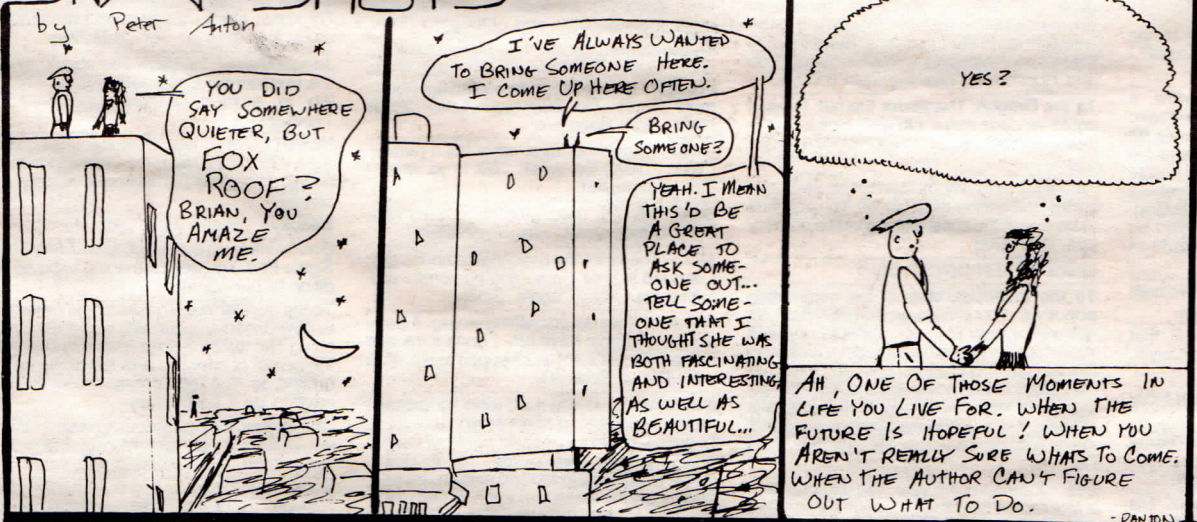 by Peter Anton
YOU DID
SAY SOMEWHERE
QUIETER, BUT
FOX
ROOF?
BRIAN, YOU
AMAZE
ME.
I'VE ALWAYS WANTED
TO BRING SOMEONE HERE.
I COME UP HERE OFTEN.
BRING
SOMEONE?
YEAH. I MEAN
THIS'D BE
A GREAT
PLACE TO
ASK SOME-
ONE OUT...
TELL SOME-
ONE THAT I
THOUGHT SHE WAS
BOTH FASCINATING
AND INTERESTING
AS WELL AS
BEAUTIFUL...
YES?
AH, ONE OF THOSE MOMENTS IN
LIFE YOU LIVE FOR. WHEN THE
FUTURE IS HOPEFUL! WHEN YOU
AREN'T REALLY SURE WHATS TO COME.
WHEN THE AUTHOR CAN'T FIGURE
OUT WHAT TO DO.
-PANTON